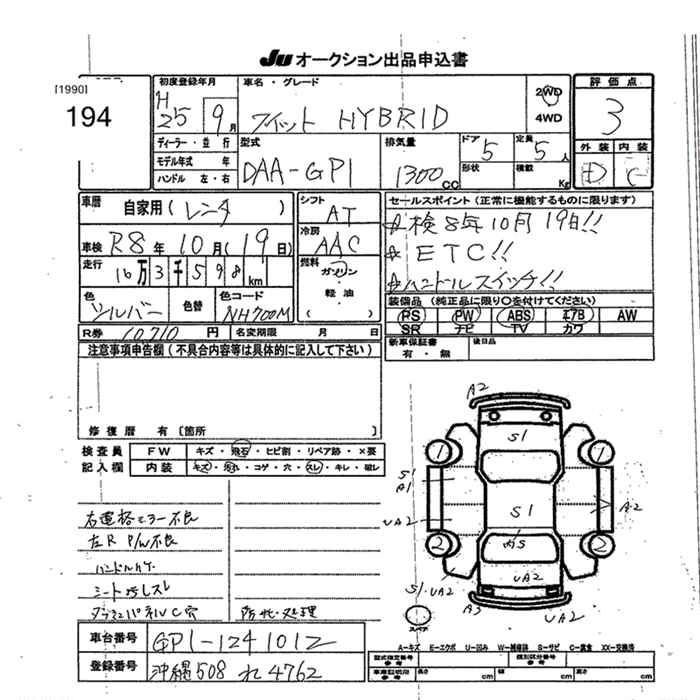 Ju オークション出品申込書
[1990]
194
初度登録年月
H25 9月
車名・グレード
フィット HYBRID
2WD
4WD
評価点
3
ディーラー・並行
モデル年式 年
ハンドル 左・右
型式
DAA-GP1
排気量
1300cc
ドア 5
形状
定員 5人
積載 Kg
外装 内装
D C
車歴 自家用(レンタ)
車検 R8年10月(19日)
走行 16万3千598km
色 シルバー 色替
色コード NH700M
シフト AT
冷房 AAC
燃料 ガソリン・軽油・
セールスポイント(正常に機能するものに限ります)
☆検8年10月19日!!
☆ETC!!
☆ハンドルスイッチ!!
装備品(純正品に限り○を付けてください)
PS PW ABS エアB AW
SR ナビ TV カワ
R券 10,710円 名変期限 月 日
新車保証書 有・無
後日品
注意事項申告欄(不具合内容等は具体的に記入して下さい)
修復歴 有〔箇所
検査員記入欄
FW キズ・飛石・ヒビ割・リペア跡・×要
内装 キズ・汚れ・コゲ・穴・スレ・キレ・破レ
右電格ミラー不良
左R P/W不良
ハンドルハゲ
シート汚レスレ
ダッシュパネルC穴
防セイ処理
車台番号 GP1-1241012
登録番号 沖縄508 れ4762
A2
S1
1 1
S1
A1
S1
A2
UA2
内S
2 2
S1・UA2
UA2
UA2
A3
スペア
A-キズ E-エクボ U-凹み W-補修跡 S-サビ C-腐食 XX-交換済
型式指定番号 参考
類別区分番号 参考
車庫証明用 参考
長さ cm
幅 cm
高さ cm